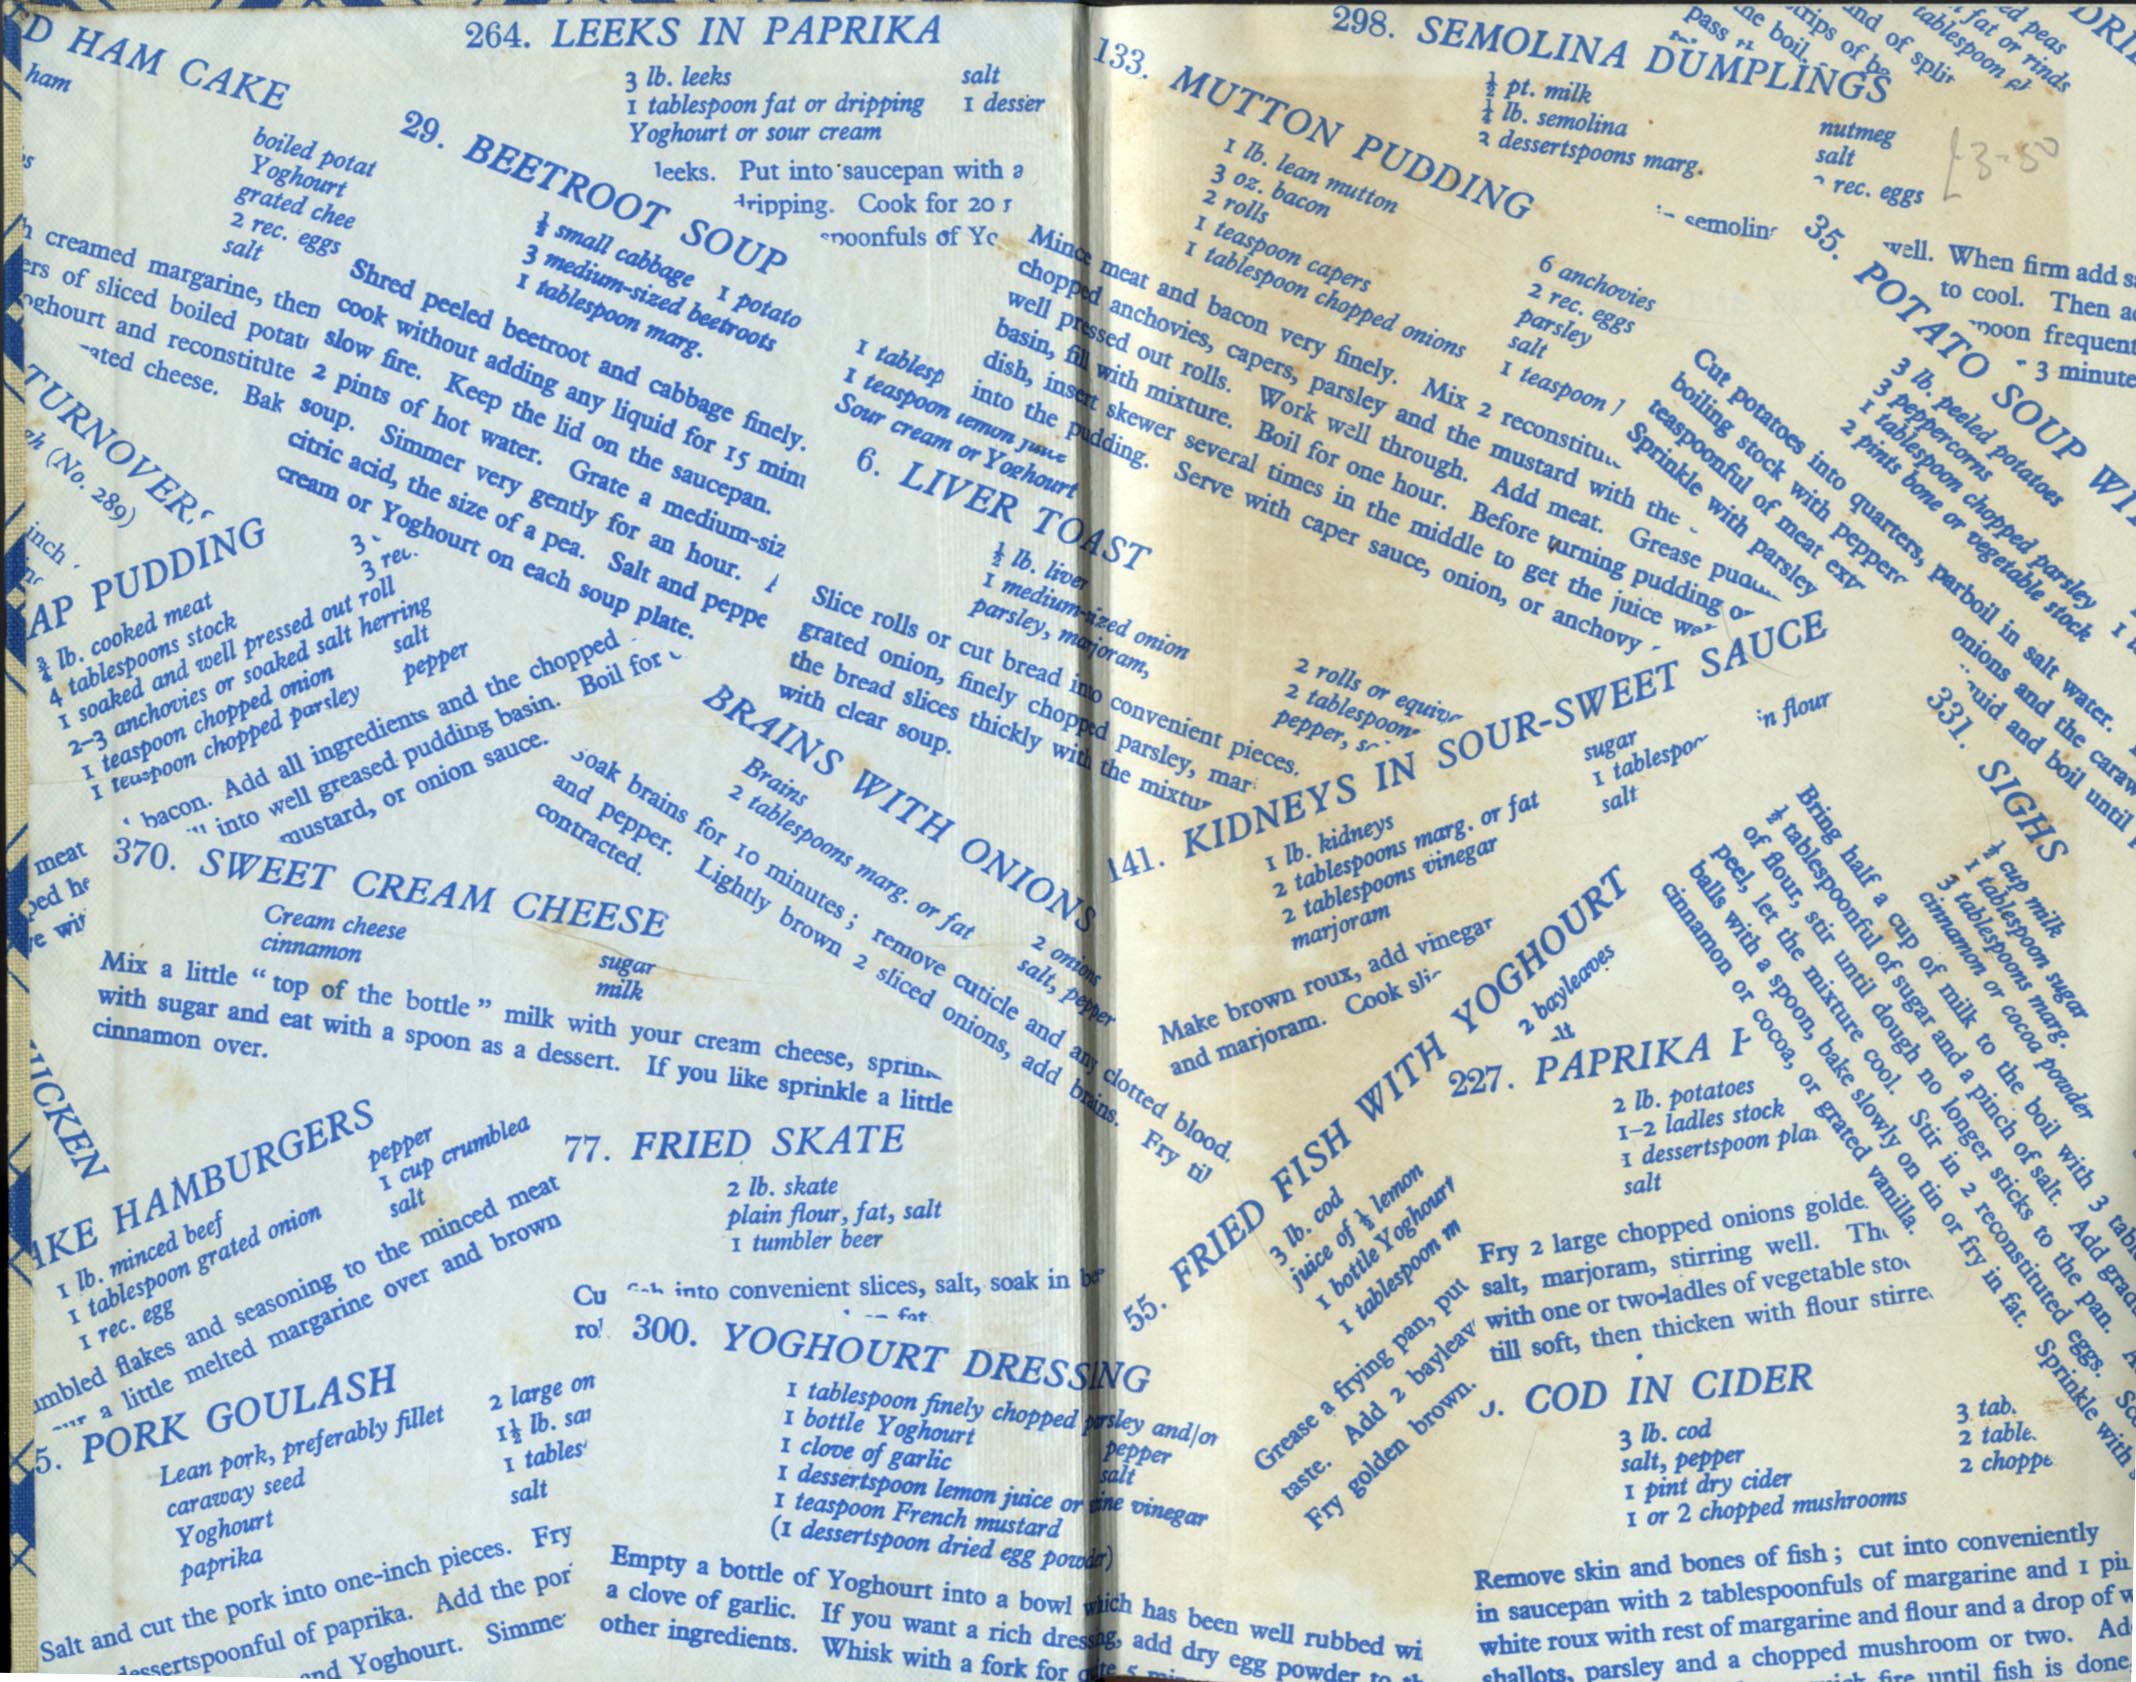 D HAM CAKE
ham
boiled potat
Yoghourt
grated chee
2 rec. eggs
salt
creamed margarine, then
ers of sliced boiled potat
oghourt and reconstitute
ated cheese. Bak
264. LEEKS IN PAPRIKA
3 lb. leeks
salt
1 tablespoon fat or dripping
1 desser
Yoghourt or sour cream
leeks. Put into saucepan with a
dripping. Cook for 20
spoonfuls of Yo
29. BEETROOT SOUP
½ small cabbage 1 potato
3 medium-sized beetroots
1 tablespoon marg.
1 tablesp
1 teaspoon lemon juice
Sour cream or Yoghourt
Shred peeled beetroot and cabbage finely.
cook without adding any liquid for 15 minu
slow fire. Keep the lid on the saucepan.
2 pints of hot water. Grate a medium-siz
soup. Simmer very gently for an hour.
citric acid, the size of a pea. Salt and peppe
cream or Yoghourt on each soup plate.
TURNOVERS
gh (No. 289)
inch
AP PUDDING
3
3 rec.
¾ lb. cooked meat
4 tablespoons stock
1 soaked and well pressed out roll
2-3 anchovies or soaked salt herring
1 teaspoon chopped onion
salt
1 teaspoon chopped parsley
pepper
bacon. Add all ingredients and the chopped
into well greased pudding basin. Boil for
mustard, or onion sauce.
meat
ped he
e wit
6. LIVER TOAST
½ lb. liver
1 medium-sized onion
parsley, marjoram,
2 rolls or equiv
2 tablespoon
pepper, s
Slice rolls or cut bread into convenient pieces.
grated onion, finely chopped parsley, mar
the bread slices thickly with the mixtur
with clear soup.
BRAINS WITH ONIONS
Brains
2 tablespoons marg. or fat
2 onions
salt, pepper
Soak brains for 10 minutes; remove cuticle and any clotted blood.
and pepper. Lightly brown 2 sliced onions, add brains. Fry til
contracted.
370. SWEET CREAM CHEESE
Cream cheese
cinnamon
sugar
milk
Mix a little "top of the bottle" milk with your cream cheese, sprin
with sugar and eat with a spoon as a dessert. If you like sprinkle a little
cinnamon over.
ICKEN
AKE HAMBURGERS
1 lb. minced beef
1 tablespoon grated onion
1 rec. egg
pepper
1 cup crumbled
salt
umbled flakes and seasoning to the minced meat
a little melted margarine over and brown
77. FRIED SKATE
2 lb. skate
plain flour, fat, salt
1 tumbler beer
Cu
into convenient slices, salt, soak in
fat.
5. PORK GOULASH
Lean pork, preferably fillet
caraway seed
Yoghourt
paprika
2 large on
1½ lb. sau
1 tables
salt
Salt and cut the pork into one-inch pieces. Fry
dessertspoonful of paprika. Add the por
and Yoghourt. Simme
300. YOGHOURT DRESSING
1 tablespoon finely chopped parsley and/or
1 bottle Yoghourt
pepper
1 clove of garlic
salt
1 dessertspoon lemon juice or wine vinegar
1 teaspoon French mustard
(1 dessertspoon dried egg powder)
Empty a bottle of Yoghourt into a bowl which has been well rubbed wi
a clove of garlic. If you want a rich dressing, add dry egg powder to th
other ingredients. Whisk with a fork for
298. SEMOLINA DUMPLINGS
½ pt. milk
¼ lb. semolina
2 dessertspoons marg.
nutmeg
salt
rec. eggs
semolin
well. When firm add s
to cool. Then a
spoon frequent
3 minute
£3-50
pass
the boil.
trips of be
and of split
tablespoon
fat or rinds
ed peas
DRI
133. MUTTON PUDDING
1 lb. lean mutton
3 oz. bacon
2 rolls
1 teaspoon capers
1 tablespoon chopped onions
6 anchovies
2 rec. eggs
parsley
salt
1 teaspoon
Mince meat and bacon very finely. Mix 2 reconstitu
chopped anchovies, capers, parsley and the mustard with the
well pressed out rolls. Work well through. Add meat. Grease pudd
basin, fill with mixture. Boil for one hour. Before turning pudding o
dish, insert skewer several times in the middle to get the juice we
into the pudding. Serve with caper sauce, onion, or anchovy
35. POTATO SOUP WI
3 lb. peeled potatoes
3 peppercorns
1 tablespoon chopped parsley
2 pints bone or vegetable stock
Cut potatoes into quarters, parboil in salt water.
boiling stock with pepperc
onions and the caraw
teaspoonful of meat ext
uid and boil until
Sprinkle with parsley
141. KIDNEYS IN SOUR-SWEET SAUCE
1 lb. kidneys
2 tablespoons marg. or fat
2 tablespoons vinegar
marjoram
sugar
1 tablespoon
in flour
salt
Make brown roux, add vinegar
and marjoram. Cook sli
331. SIGHS
½ cup milk
1 tablespoon sugar
3 tablespoons marg.
cinnamon or cocoa powder
Bring half a cup of milk to the boil with 3 tabl
½ tablespoonful of sugar and a pinch of salt. Add grad
of flour, stir until dough no longer sticks to the pan. A
peel, let the mixture cool. Stir in 2 reconstituted eggs. Sc
balls with a spoon, bake slowly on tin or fry in fat. Sprinkle with
cinnamon or cocoa, or grated vanilla.
55. FRIED FISH WITH YOGHOURT
3 lb. cod
juice of ½ lemon
1 bottle Yoghourt
1 tablespoon m
2 bayleaves
Grease a frying pan, put
taste. Add 2 bayleav
Fry golden brown.
227. PAPRIKA
2 lb. potatoes
1-2 ladles stock
1 dessertspoon plai
salt
Fry 2 large chopped onions golde
salt, marjoram, stirring well. The
with one or two ladles of vegetable sto
till soft, then thicken with flour stirre
COD IN CIDER
3 lb. cod
salt, pepper
1 pint dry cider
1 or 2 chopped mushrooms
3 tab.
2 table.
2 choppe
Remove skin and bones of fish; cut into conveniently
in saucepan with 2 tablespoonfuls of margarine and 1 pin
white roux with rest of margarine and flour and a drop of w
shallots, parsley and a chopped mushroom or two. Ad
fire until fish is done